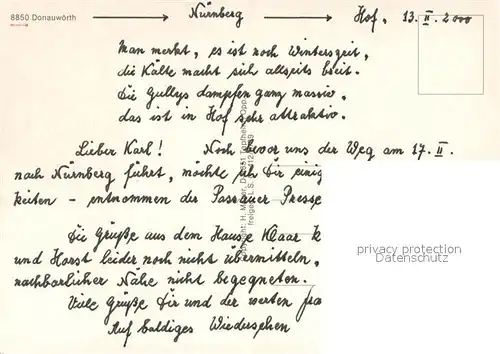 8850 Donauwörth → Nürnberg → Hof, 13. II. 2000
Man merkt, es ist noch Winterszeit,
die Kälte macht sich allseits breit.
Die Gullys dampfen ganz massiv,
das ist in Hof sehr attraktiv.
Lieber Karl! Noch bevor uns der Weg am 17. II.
nach Nürnberg führt, möchte ich Dir einig
keiten - entnommen der Passauer Presse
Die Grüße aus dem Hause Klaar k
und Horst leider noch nicht übermitteln,
nachbarlicher Nähe nicht begegneten.
Viele Grüße Dir und der werten Fra
Auf baldiges Wiedersehen
privacy protection
Datenschutz